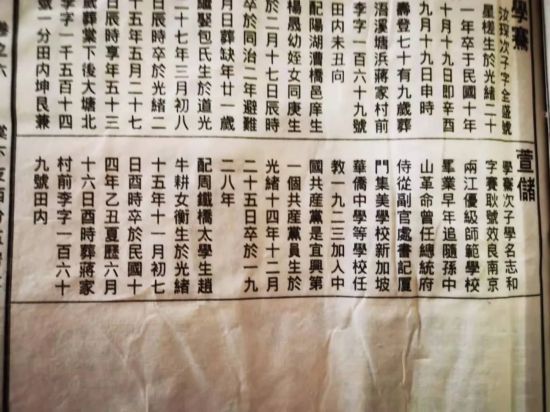 學騫
次子字全盛號
星槎生於光緒二十
一年卒于民國十年
十月十九日即辛酉
九月十九日申時
壽登七十有九歲葬
浯溪塘浜蔣家村前
李字一百六十九號
田内未丑向
配陽湖漕橋邑庠生
楊晟幼姪女同庚生
於二月十七日辰時
卒於同治二年避難
月日葬缺年廿一歲
繼娶包氏生於道光
二十七年三月初八
日辰時卒於光緒二
十五年五月二十七
日辰時享年五十三
歲葬棠下後大塘北
李字一千五百十四
號一分田内坤艮兼
萱儲
學騫次子學名志和
字賽耿號效良南京
兩江優級師範學校
畢業早年追隨孫中
山革命曾任總統府
侍從副官處書記厦
門集美學校新加坡
華僑中學等學校任
教一九二三加入中
國共産黨是宜興第
一個共産黨員生於
光緒十四年十二月
二十五日卒於一九
二八年
配周鐵橋太學生趙
牛耕女衡生於光緒
十五年十一月初七
日酉時卒於民國十
四年乙丑夏歷六月
十六日酉時葬蔣家
村前李字一百六十
九號田内
卷之六